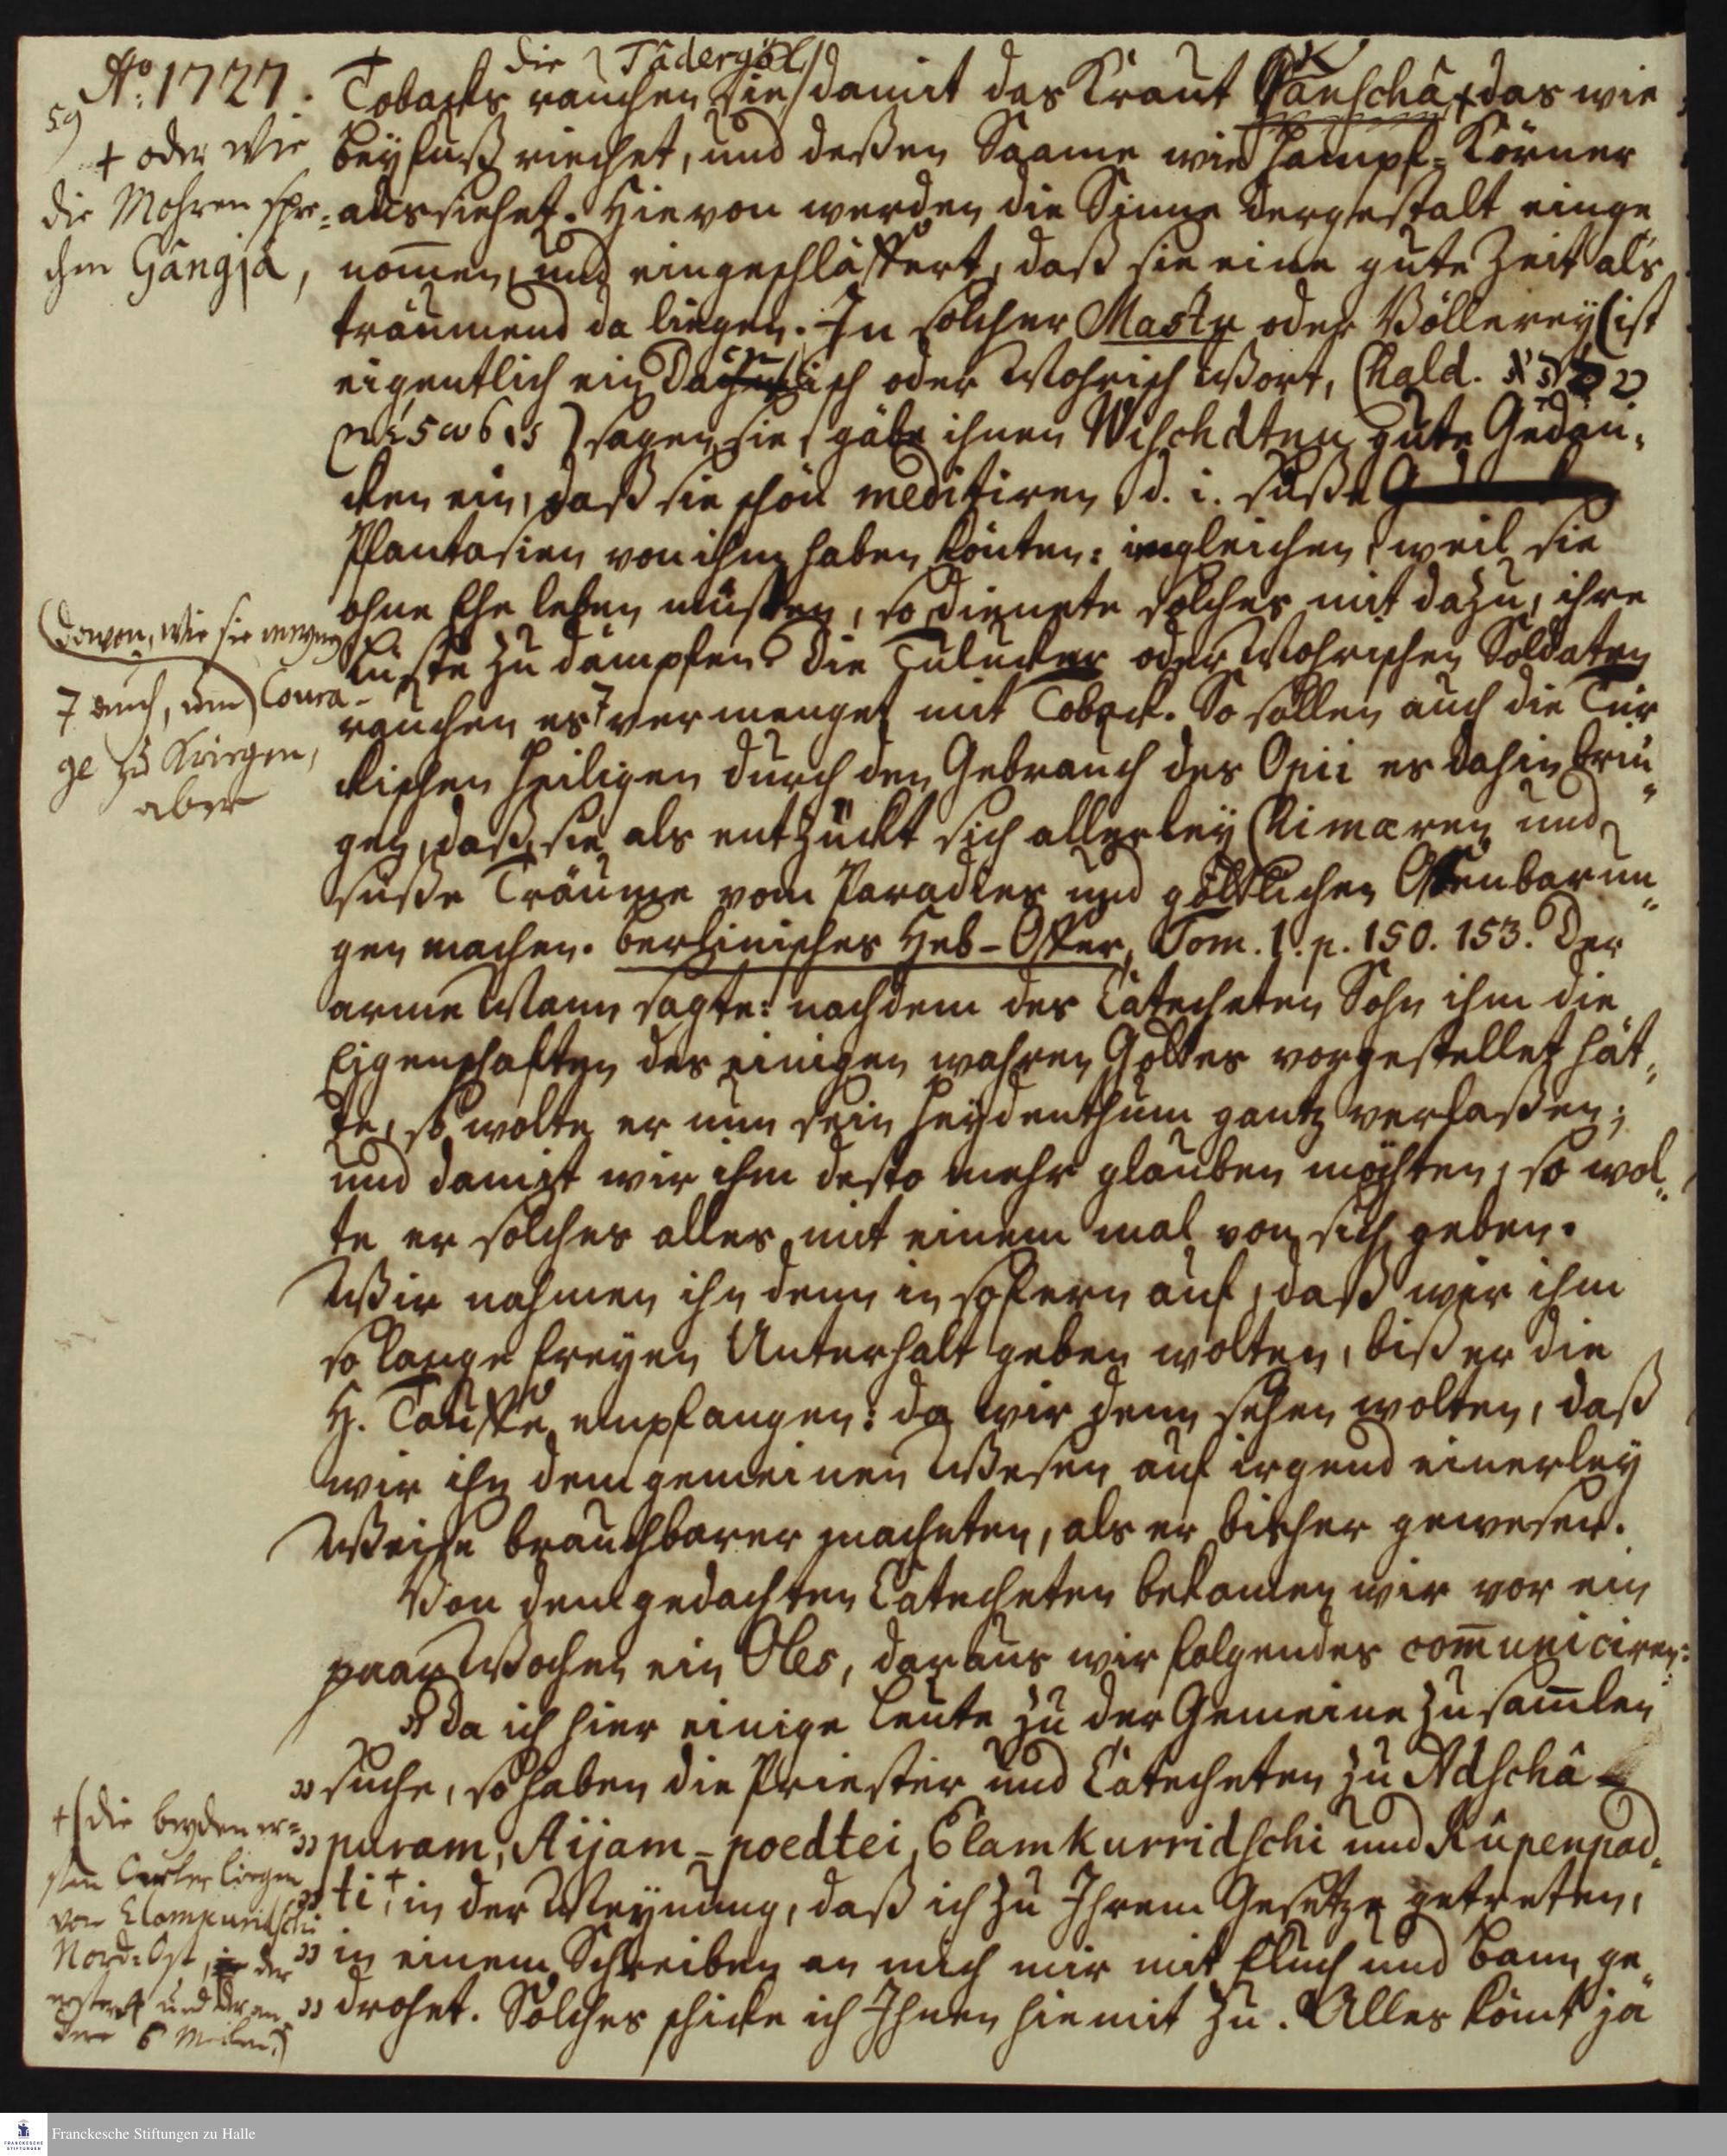 Aō: 1727.
59
Tobacks rauchen sie die Tâdergöl damit das Kraut Kanschâ + das wie
+ oder wie
die Mohren spre=
chen Gângjâ,
Beyfuß riechet, und deßen Saame wie Hampf=Körner
aussiehet. Hievon werden die Sinne dergestalt einge
nom̄en, und eingeschläffert, daß sie eine gute Zeit als
träumend da liegen. In solcher Masty oder Völlerey (ist
eigentlich ein Dacnisch oder Mohrisch Wort, Chald.
sagen sie, gäbe ihnen Wischdtnu gute Gedan„
cken ein, daß sie schön meditiren d. i. süße
Phantasien von ihm haben könten: imgleichen, weil sie
ohne Ehe leben müßten, so dienete solches mit dazu, ihre
Lüste zu dämpfen. Die Tulucker oder Mohrischen Soldaten
(davon, wie sie meynen
7 auch, um) Coura-
ge zu kriegen,
aber
rauchen es 7 vermenget mit Toback. So sollen auch die Tür
ckischen Heiligen durch den Gebrauch des Opii es dahin brin„
gen, daß sie als entzückt sich allerley Chimæren und
süße Träume vom Paradies und göttlichen Offenbarun„
gen machen. Berlinisches Heb-Offer, Tom. 1. p. 150. 153. Der
arme Mann sagte: nachdem des Catecheten Sohn ihm die
Eigenschaften des einigen wahren Gottes vorgestellet hät„
te, so wolte er nun sein Heydenthum gantz verlaßen;
und damit wir ihm desto mehr glauben möchten, so wol„
te er solches alles mit einem mal von sich geben.
Wir nahmen ihn denn in sofern auf, daß wir ihm
so lange freyen Unterhalt geben wolten, biß er die
H. Tauffe empfangen: da wir denn sehen wolten, daß
wir ihn dem gemeinen Wesen auf irgend einerley
Weise brauchbarer machten, als er bisher gewesen.
Von dem gedachten Catecheten bekamen wir vor ein
paar Wochen ein Oles, daraus wir folgendes com̄uniciren:
„Da ich hier einige Leute zu der Gemeine zu sam̄len
„suche, so haben die Priester und Catecheten zu Adschâ-
„puram, Aijam-poedtei, Elamkurridschi und Rûpenpad„
„ti +, in der Meynung, daß ich zu Ihrem Gesetze getreten,
„in einem Schreiben an mich mir mit Fluch und Bann ge„
„drohet. Solches schicke ich Ihnen hiemit zu. Alles kömt ja
+ (die beyden er=
sten Oerter liegen
von Elamkuridschi
Nord-Ost, der
erstere und der an
dere 6 Meilen.)
Franckesche Stiftungen zu Halle